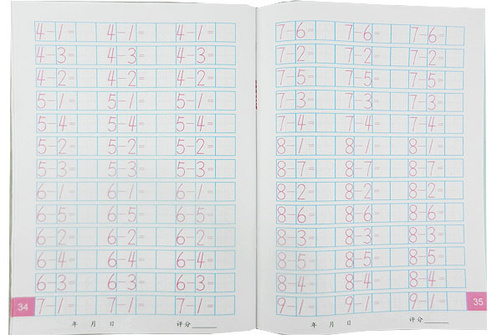 4-1= 4-1= 4-1=
4-3= 4-3= 4-3=
4-2= 4-2= 4-2=
5-1= 5-1= 5-1=
5-4= 5-4= 5-4=
5-2= 5-2= 5-2=
5-3= 5-3= 5-3=
6-1= 6-1= 6-1=
6-5= 6-5= 6-5=
6-2= 6-2= 6-2=
6-4= 6-4= 6-4=
6-3= 6-3= 6-3=
7-1= 7-1= 7-1=
34
年 月 日 评分
7-6= 7-6= 7-6=
7-2= 7-2= 7-2=
7-5= 7-5= 7-5=
7-3= 7-3= 7-3=
7-4= 7-4= 7-4=
8-1= 8-1= 8-1=
8-7= 8-7= 8-7=
8-2= 8-2= 8-2=
8-6= 8-6= 8-6=
8-3= 8-3= 8-3=
8-5= 8-5= 8-5=
8-4= 8-4= 8-4=
9-1= 9-1= 9-1=
35
年 月 日 评分